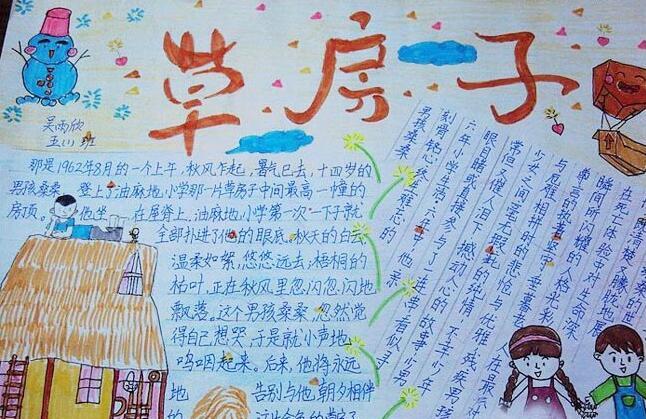 草房子
吴雨欣
五(1)班
那是1962年8月的一个上午,秋风乍起,暑气已去,十四岁的
男孩桑桑,登上了油麻地小学那一片草房子中间最高一幢的
房顶。他坐在屋脊上,油麻地小学第一次一下子就
全部扑进了他的眼底。秋天的白云
温柔如絮,悠悠远去;梧桐的
枯叶,正在秋风里忽闪忽闪地
飘落。这个男孩桑桑,忽然觉
得自己想哭,于是就小声地
呜咽起来。后来,他将永远
地告别与他朝夕相伴
的
男孩桑桑
刻骨铭心终生难忘的
六年小学生活。六年中,他亲
眼目睹或直接参与了一连串看似寻
常但又催人泪下、撼动人心的故事:少男
少女之间毫无瑕疵的纯情,不幸少年
与厄运相拼时的悲怆与优雅,残疾男孩对
尊严的执着坚守,垂暮老人在最后一
瞬间所闪耀的人格光彩
在死亡体验中对生命深